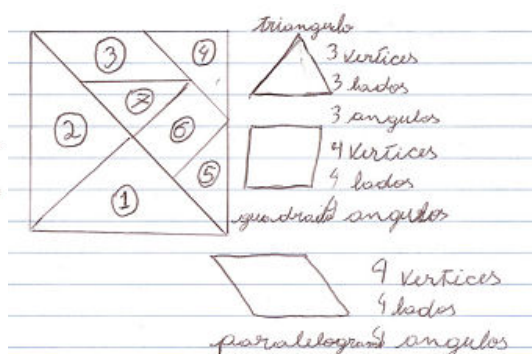 3
4
7
2
6
5
1
triangulo
3 vertices
3 lados
3 angulos
4 vertices
4 lados
quadrado 4 angulos
4 vertices
4 lados
paralelogramo 4 angulos